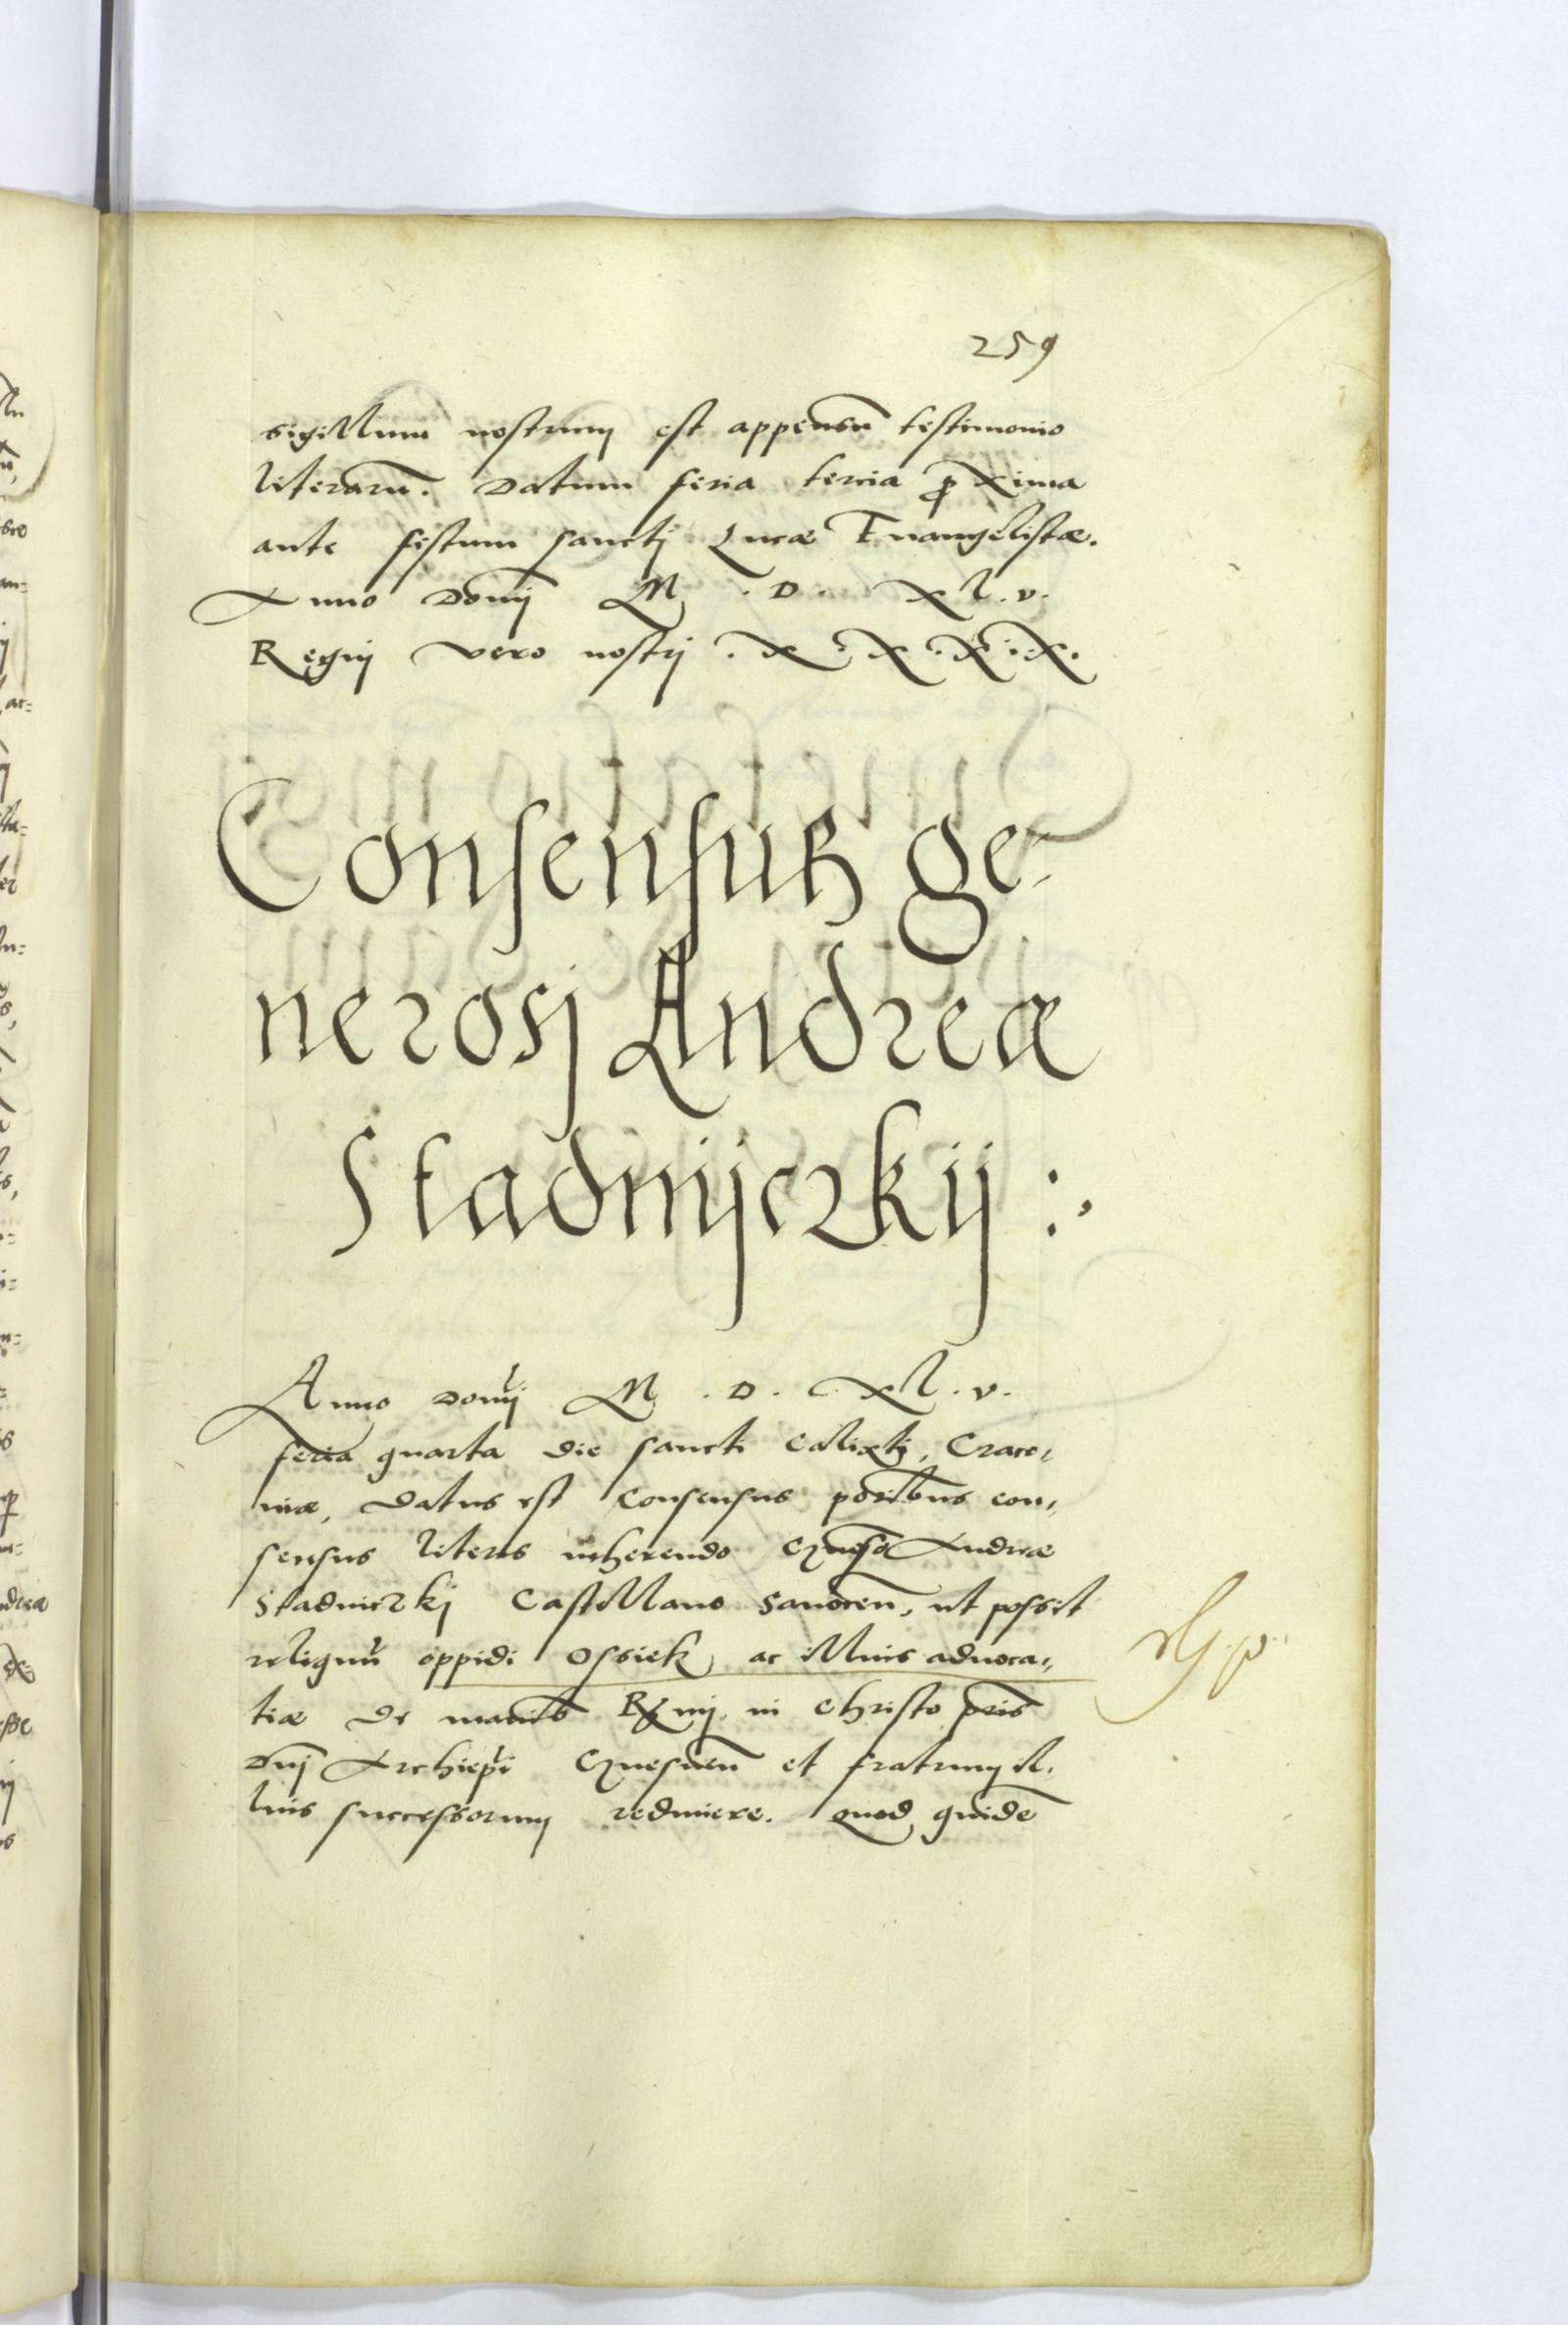 259
sigillum nostrum est appensũ testimonio
literarũ. Datum feria tercia ꝓxima
ante festum sanctj Lucæ Euangelistæ.
Anno Domĩj M . D . XL . v .
Regnj vero nostrj . X . X . X . i . X .
Consensus ge-
nerosj Andreæ
Stadnijczkij :.
Anno Domĩj M . D . XL . v .
feria quarta die sancti Calixtj, Craco-
uiæ, Datus est Consensus poribus con-
sensus literis inherendo Andreæ
Stadniczkj Castellano Sanoceñ, ut possit
reliquũ oppidi Ossiek ac illius aduoca-
tiæ de manibs Rmj in Christo pris
Dnj Archiepi Gnesneñ et fratrum il-
lius successorum redimere. Quod quidẽ